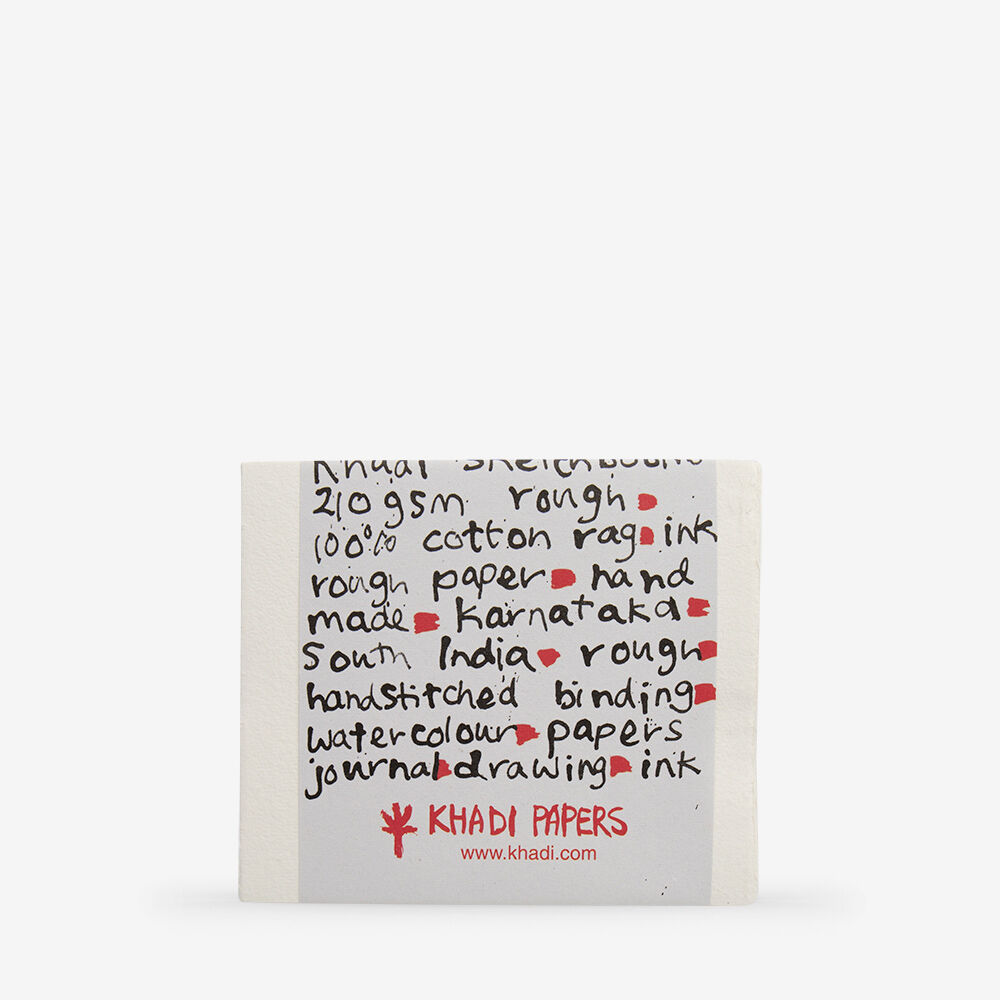 Khadi sketchbook
210gsm rough
100% cotton rag ink
rough paper hand
made Karnataka
South India rough
handstitched binding
watercolour papers
journal drawing ink
KHADI PAPERS
www.khadi.com